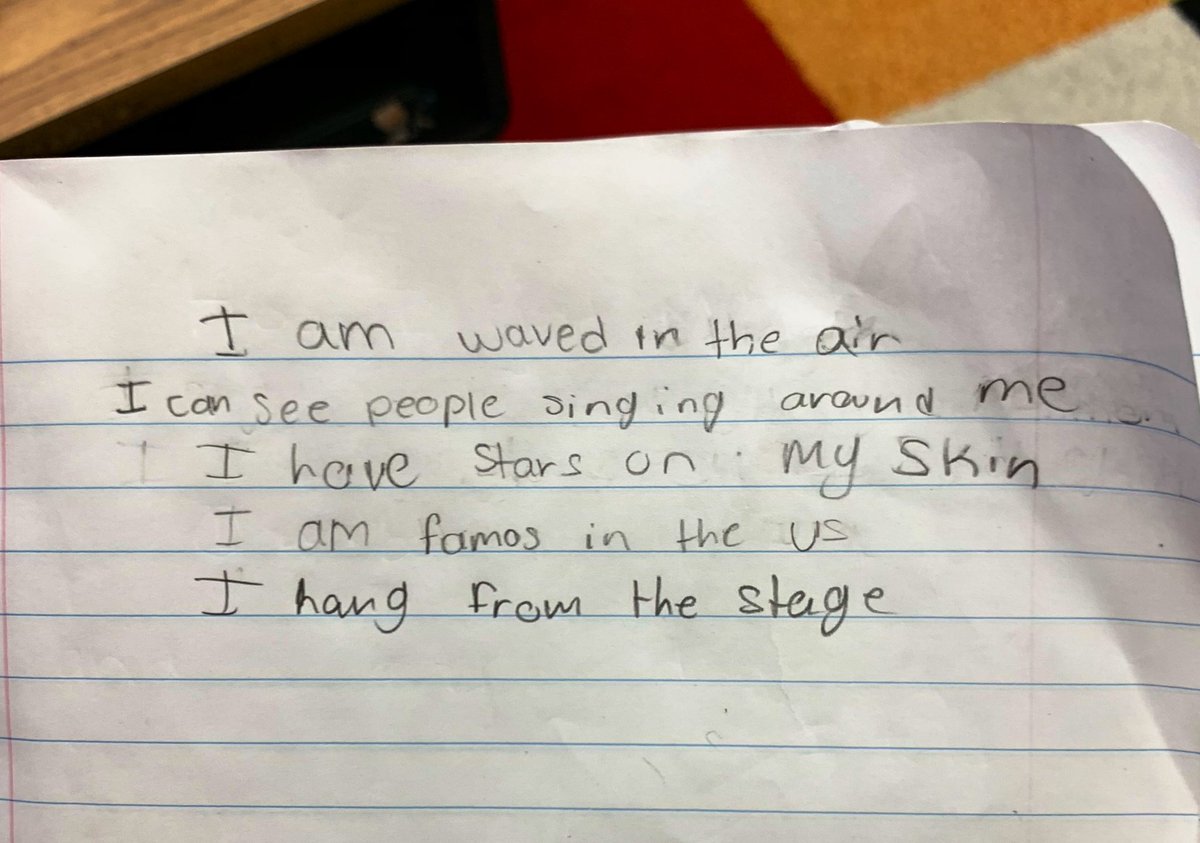 I am waved in the air
I can see people singing around me
I have stars on my skin
I am famos in the us
I hang from the stage